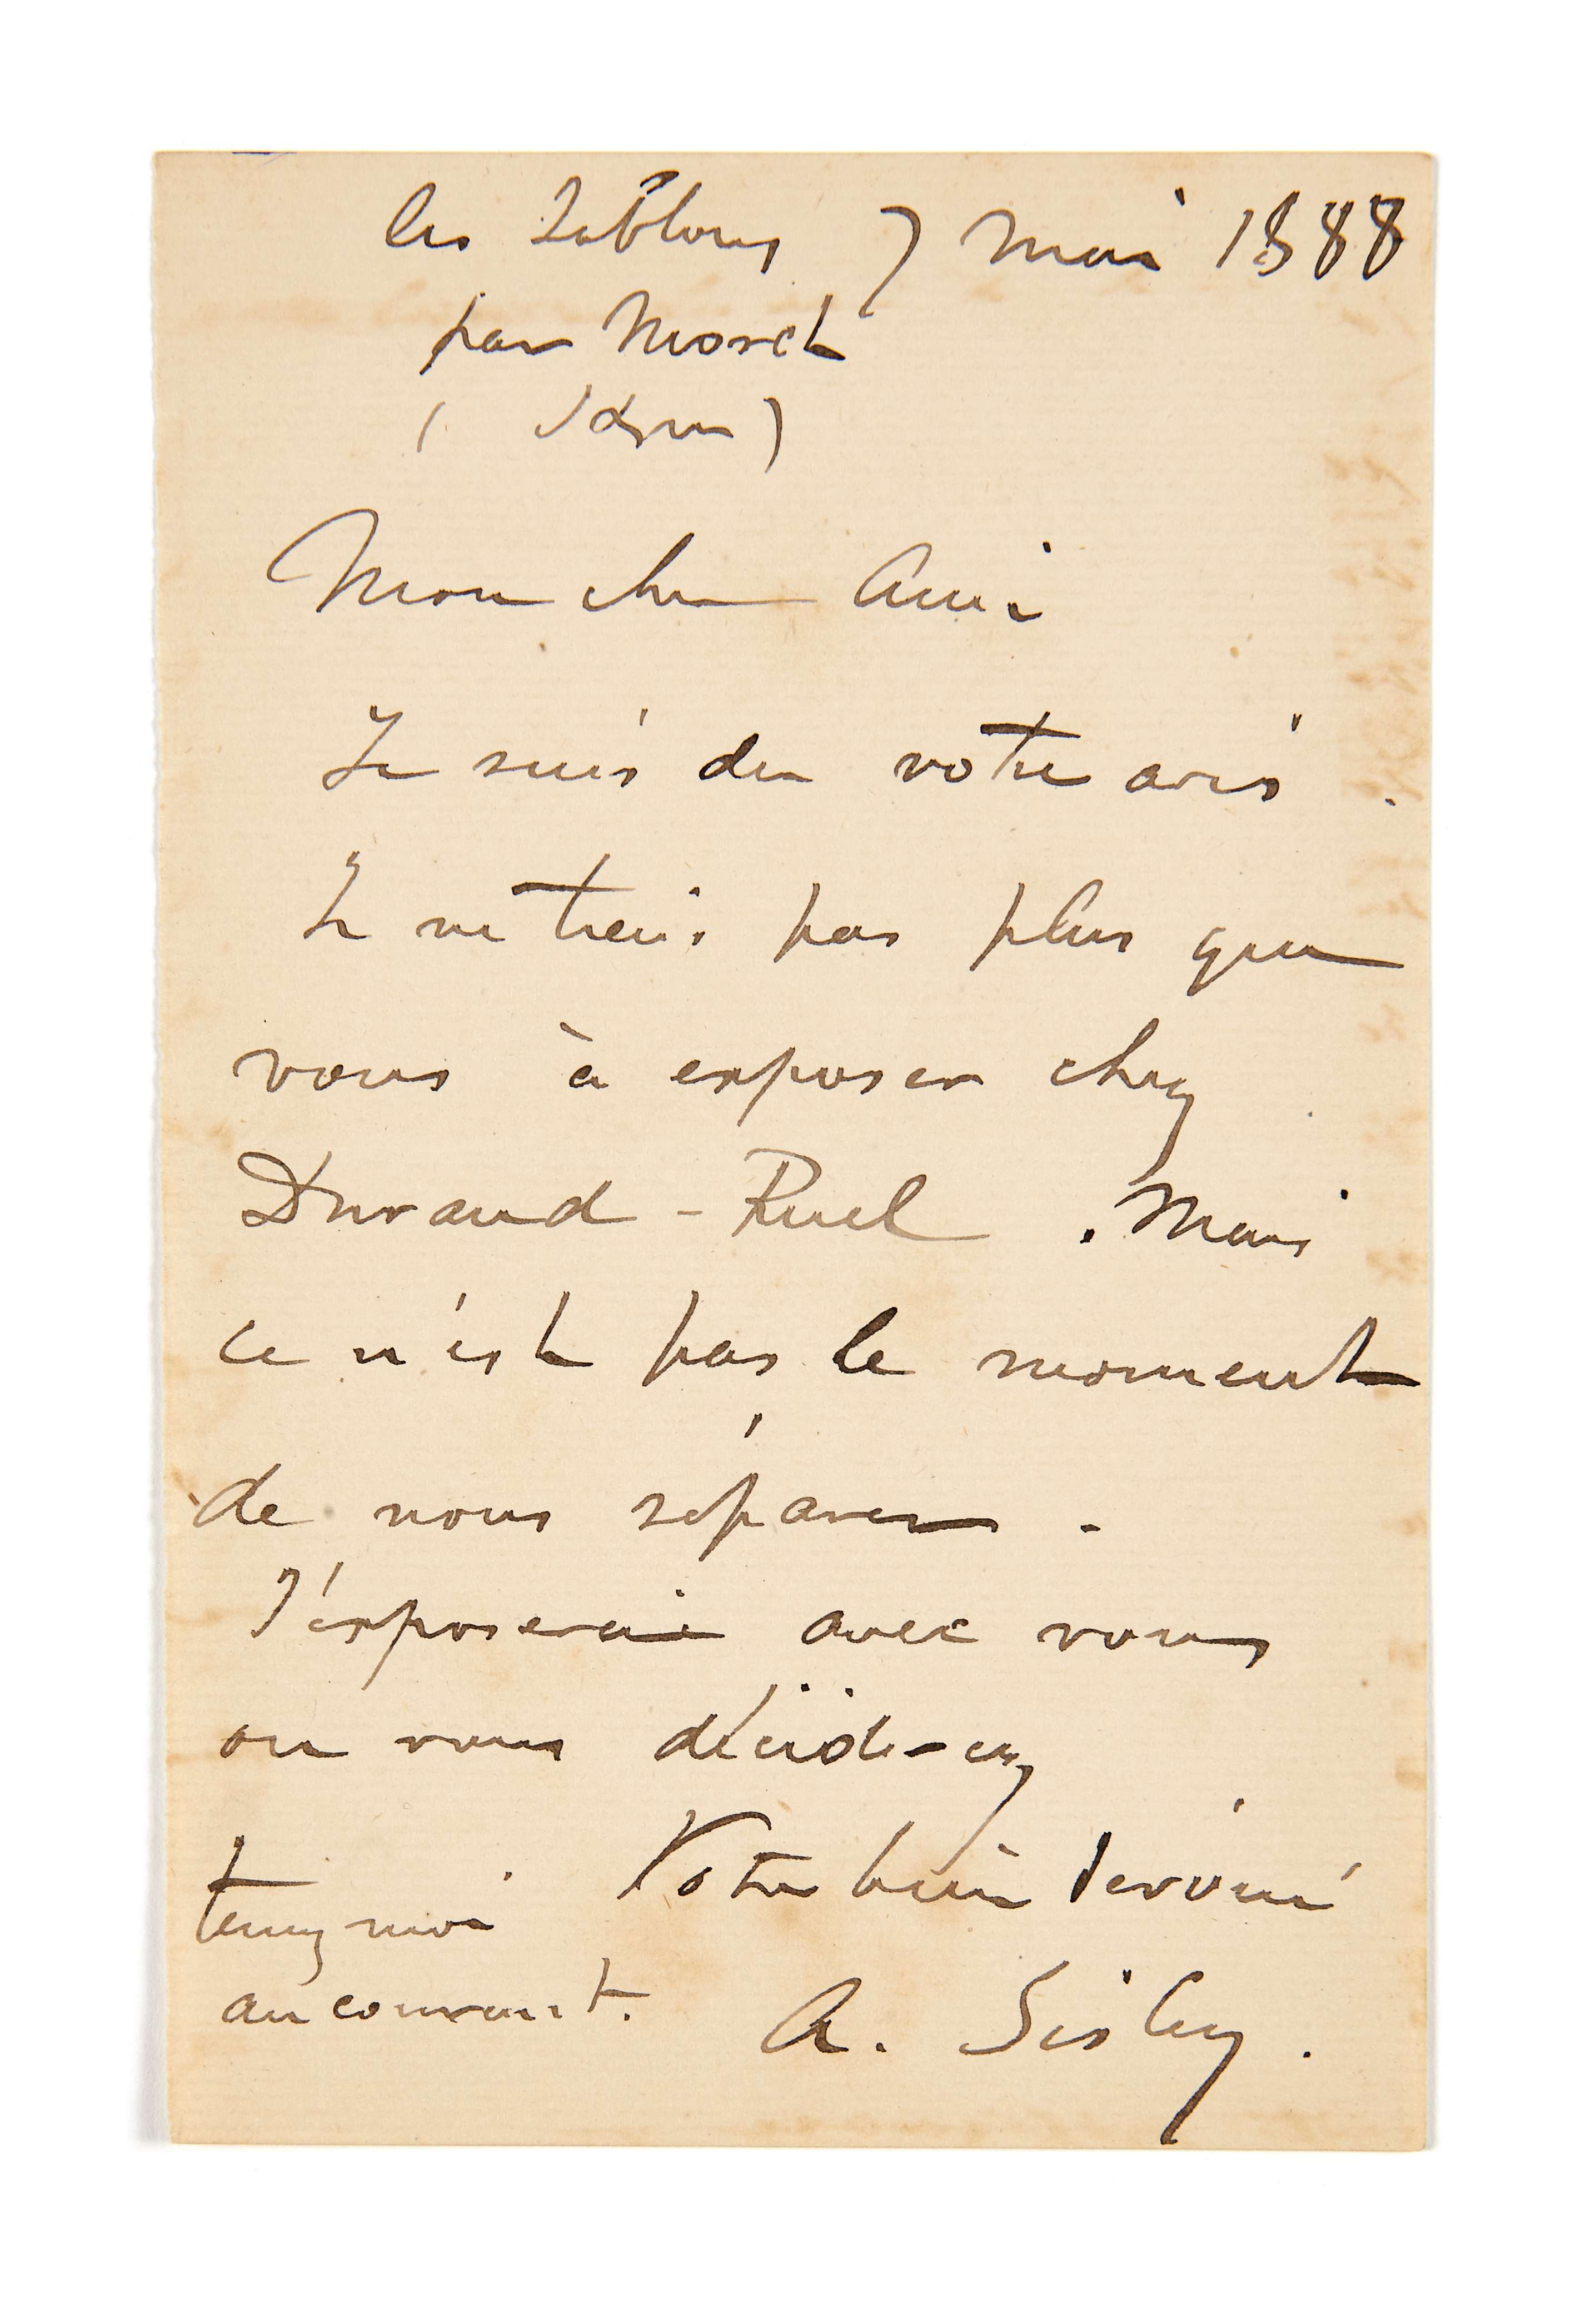 les Sablons 7 mai 1888
par Moret
(
)
Mon cher Ami
Je suis de votre avis.
Je ne tiens pas plus que
vous à exposer chez
Durand-Ruel. Mais
ce n'est pas le moment
de nous séparer.
J'exposerai avec vous
ou vous déciderez
Votre bien dévoué
tenez moi
au courant.
A. Sisley.